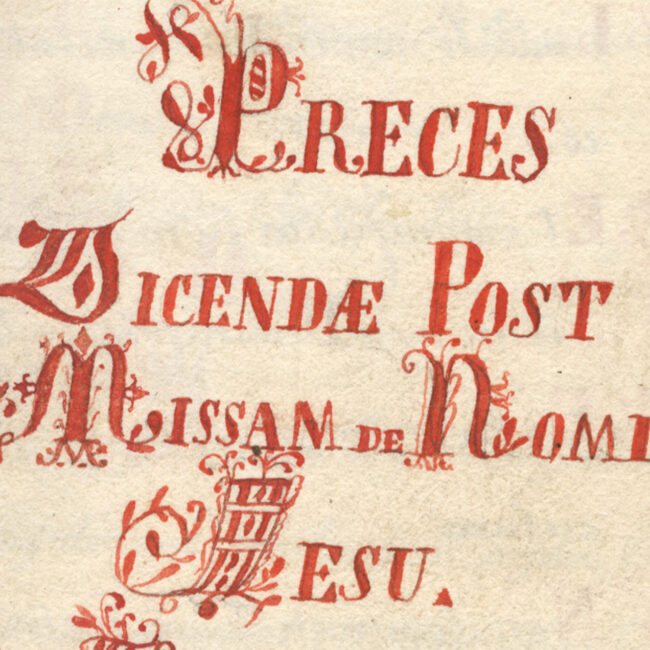 PRECES
DICENDÆ POST
MISSAM DE NOMI
JESU.